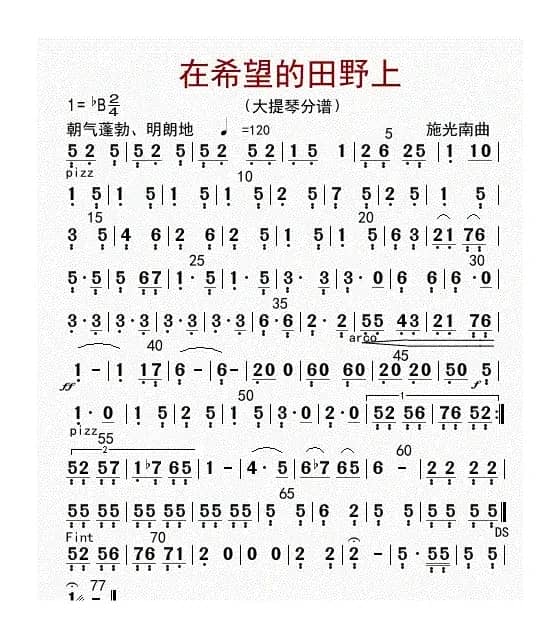 在希望的田野上
1=♭B2/4 （大提琴分谱）
朝气蓬勃、明朗地 ♩=120 5 施光南曲
5 2 5|5 2 5|5 2 5 2|1 5 1|2 6 2 5|1 1 0|
pizz 10
1 5|1 5|1 5|1 5|2 5|7 5|2 5|1 5|
15 20
3 5|4 6|2 6|2 5|1 5|1 5|6 3|2 1 7 6|
25 30
5·5|5 6 7|1·5|1·5|3·3|3·0|6 6|6·0|
35
3·3|3·3|3·3|6·6|2·2|5 5 4 3|2 1 7 6|
arco
40 45
1-|1 1 7|6-|6-|2 0 0|6 0 6 0|2 0 2 0|5 0 5|
ff f
50 1
1·0|1 5|2 5|1 5|3·0|2·0|5 2 5 6|7 6 5 2:|
pizz 55
2 60
5 2 5 7|1·♭7 6 5|1-|4·5|6♭7 6 5|6-|2 2 2 2|
65
5 5 5 5|5 5 5 5|5 5 5 5|5 5|6 2|5 5|5 5 5 5‖
Fint 70 DS
5 2 5 6|7 6 7 1|2 0|0 0|2 2|2-|5·5 5|5 5|
77
1